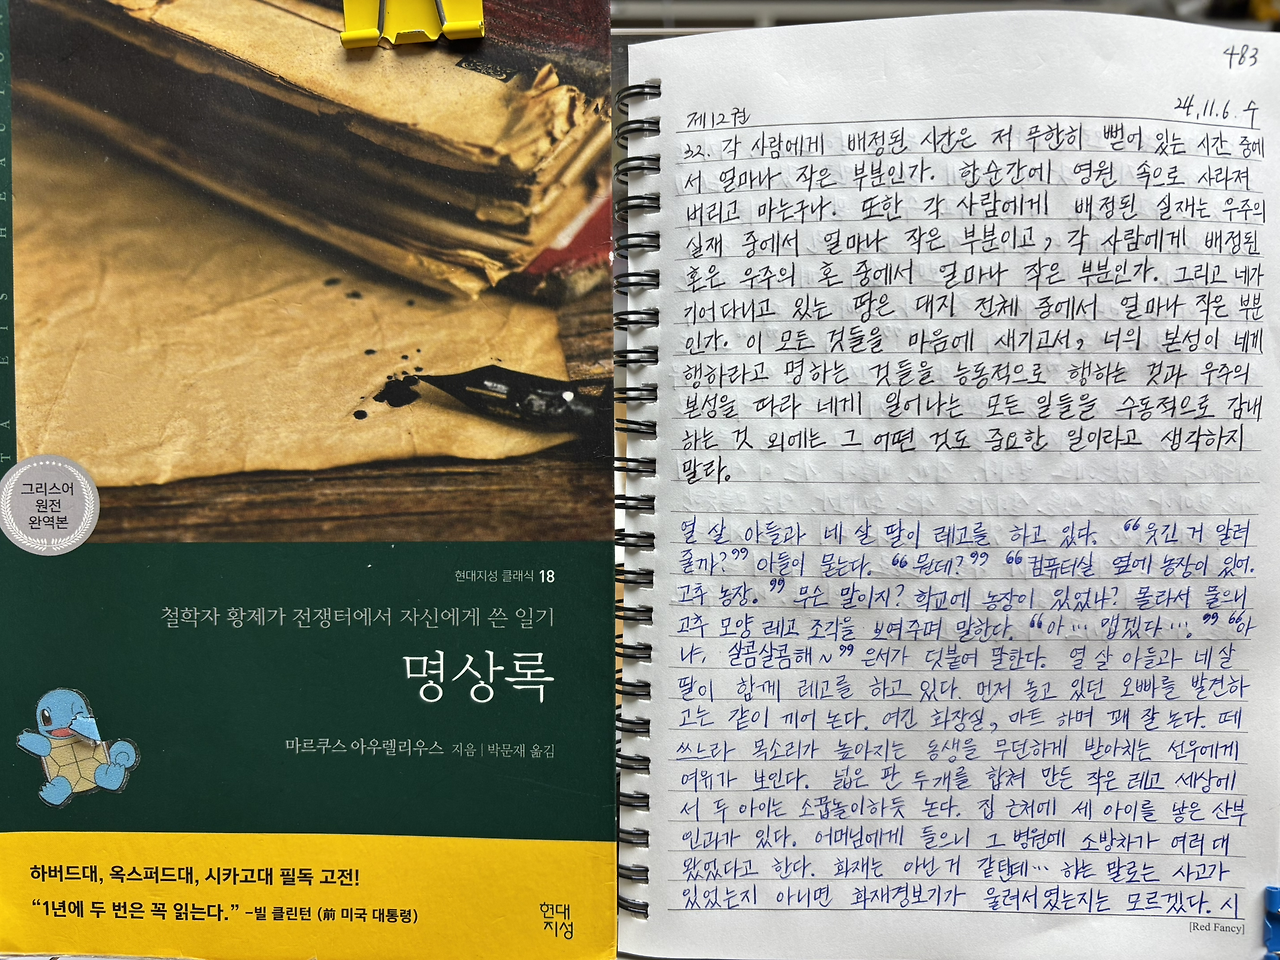 T A E I S H E A U T O N
그리스어
원전
완역본
현대지성 클래식 18
철학자 황제가 전쟁터에서 자신에게 쓴 일기
명상록
마르쿠스 아우렐리우스 지음 | 박문재 옮김
하버드대, 옥스퍼드대, 시카고대 필독 고전!
“1년에 두 번은 꼭 읽는다.” –빌 클린턴 (前 미국 대통령)
현대
지성
483
제12권 24. 11. 6. 수
32. 각 사람에게 배정된 시간은 저 무한히 뻗어 있는 시간 중에
서 얼마나 작은 부분인가. 한순간에 영원 속으로 사라져
버리고 마는구나. 또한 각 사람에게 배정된 실재는 우주의
실재 중에서 얼마나 작은 부분이고, 각 사람에게 배정된
혼은 우주의 혼 중에서 얼마나 작은 부분인가. 그리고 네가
기어다니고 있는 땅은 대지 전체 중에서 얼마나 작은 부분
인가. 이 모든 것들을 마음에 새기고서, 너의 본성이 네게
행하라고 명하는 것들을 능동적으로 행하는 것과 우주의
본성을 따라 네게 일어나는 모든 일들을 수동적으로 감내
하는 것 외에는 그 어떤 것도 중요한 일이라고 생각하지
말라.
열 살 아들과 네 살 딸이 레고를 하고 있다. “웃긴 거 알려
줄까?” 아들이 묻는다. “뭔데?” “컴퓨터실 옆에 농장이 있어.
고추 농장.” 무슨 말이지? 학교에 농장이 있었나? 몰라서 물으니
고추 모양 레고 조각을 보여주며 말한다. “아… 맵겠다….” “아
냐, 살콤살콤해~” 은서가 덧붙여 말한다. 열 살 아들과 네 살
딸이 함께 레고를 하고 있다. 먼저 놀고 있던 오빠를 발견하
고는 같이 끼어 논다. 여긴 화장실, 마트 하며 꽤 잘 논다. 떼
쓰느라 목소리가 높아지는 동생을 무던하게 받아치는 선우에게
여유가 보인다. 넓은 판 두 개를 합쳐 만든 작은 레고 세상에
서 두 아이는 소꿉놀이하듯 논다. 집 근처에 세 아이를 낳은 산부
인과가 있다. 어머님에게 들으니 그 병원에 소방차가 여러 대
왔었다고 한다. 화재는 아닌 거 같던데… 하는 말로는 사고가
있었는지 아니면 화재경보기가 울려서였는지는 모르겠다. 시
[Red Fancy]